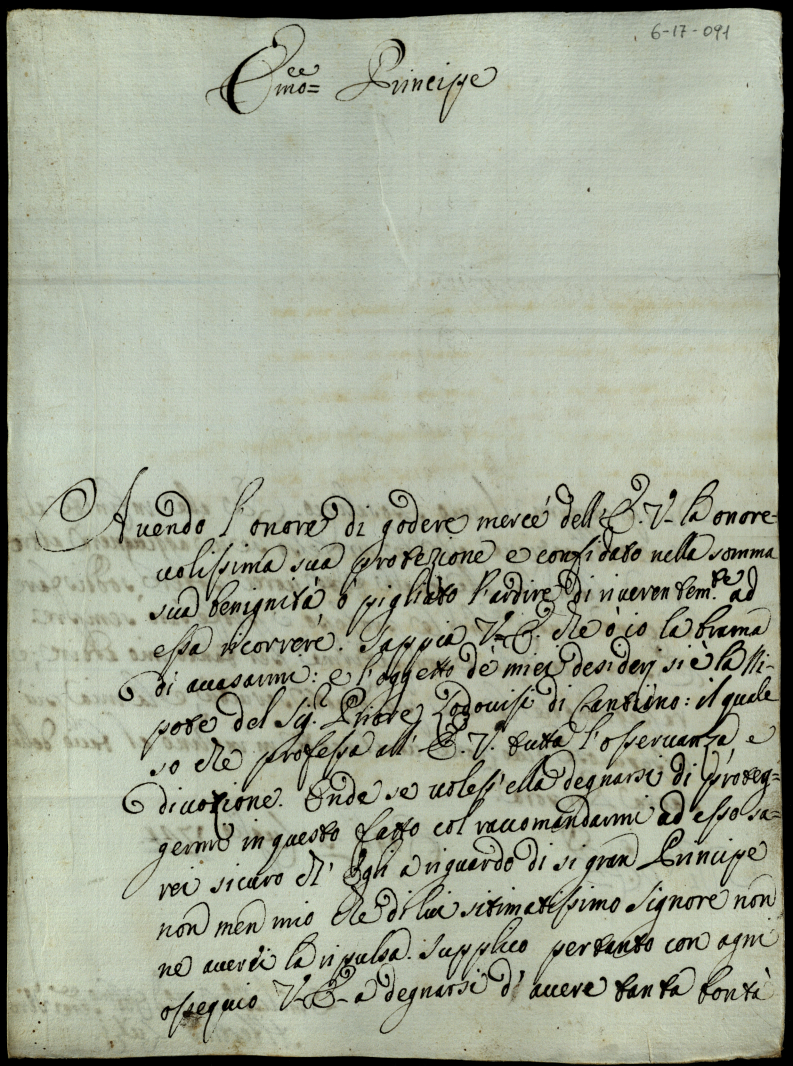 6-17-091
E.mo Principe
Avendo l'onore di godere mercé dell'E. V. la onore-
uolissima sua protezione e confidato nella somma
sua benignità ò pigliato l'ardire di riuerentem.te ad
essa ricorrere. Sappia V. E. che ò io la brama
di accasarmi: e l'oggetto de' miei desiderj si è la Ni-
pote del Sig.r Priore Lodouisi di Cantiano: il quale
so che professa all'E. V. tutta l'osseruanza, e
diuozione. Onde se uoless' ella degnarsi di proteg-
germi in questo fatto col raccomandarmi ad esso sa-
rei sicuro ch' Egli a riguardo di si gran Principe
non men mio che di lui stimatissimo Signore non
ne auerei la ripulsa. Supplico pertanto con ogni
ossequio V. E. a degnarsi d' auere tanta bontà